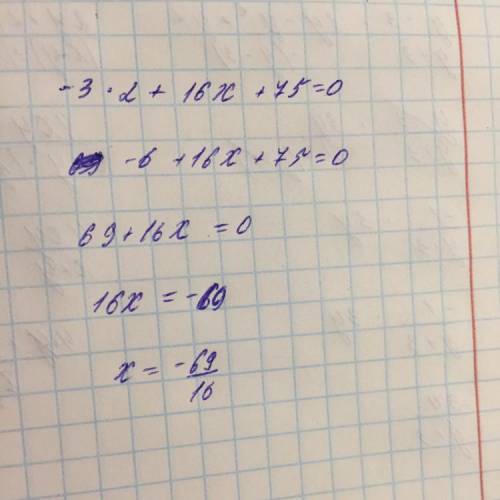 -3·2 + 16x + 75=0
-6 +16x +75=0
69+16x =0
16x = -69
x = -69/16